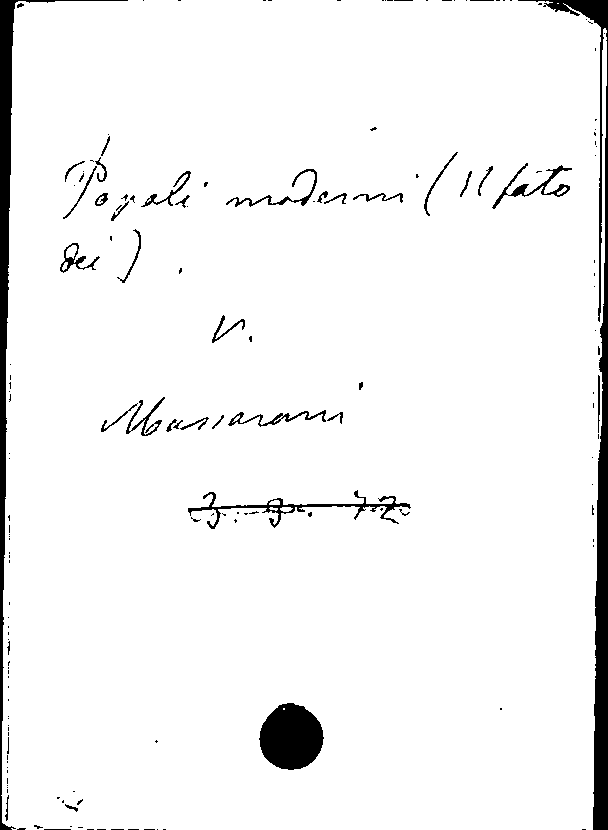 Popoli moderni (Il fato
dei).
V.
Massarani
3. g. 72